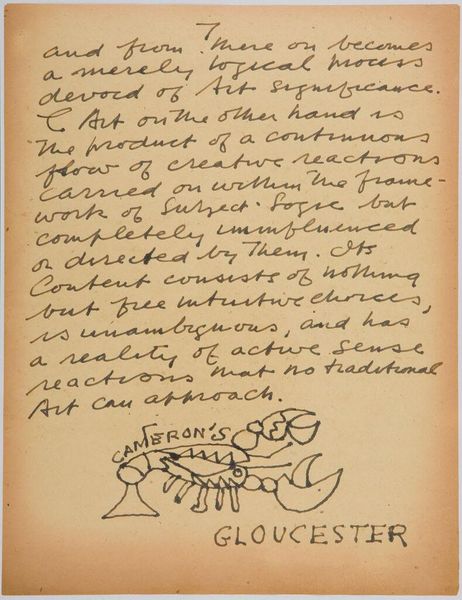 7
and from there on becomes
a merely logical process
devoid of Art significance.
Art on the other hand is
the product of a continuous
flow of creative reactions
carried on within the frame-
work of Subject-Logic but
completely uninfluenced
or directed by Them. Its
Content consists of nothing
but free intuitive choices,
is unambiguous, and has
a reality of active sense
reactions that no traditional
Art can approach.
CAMERON'S
GLOUCESTER